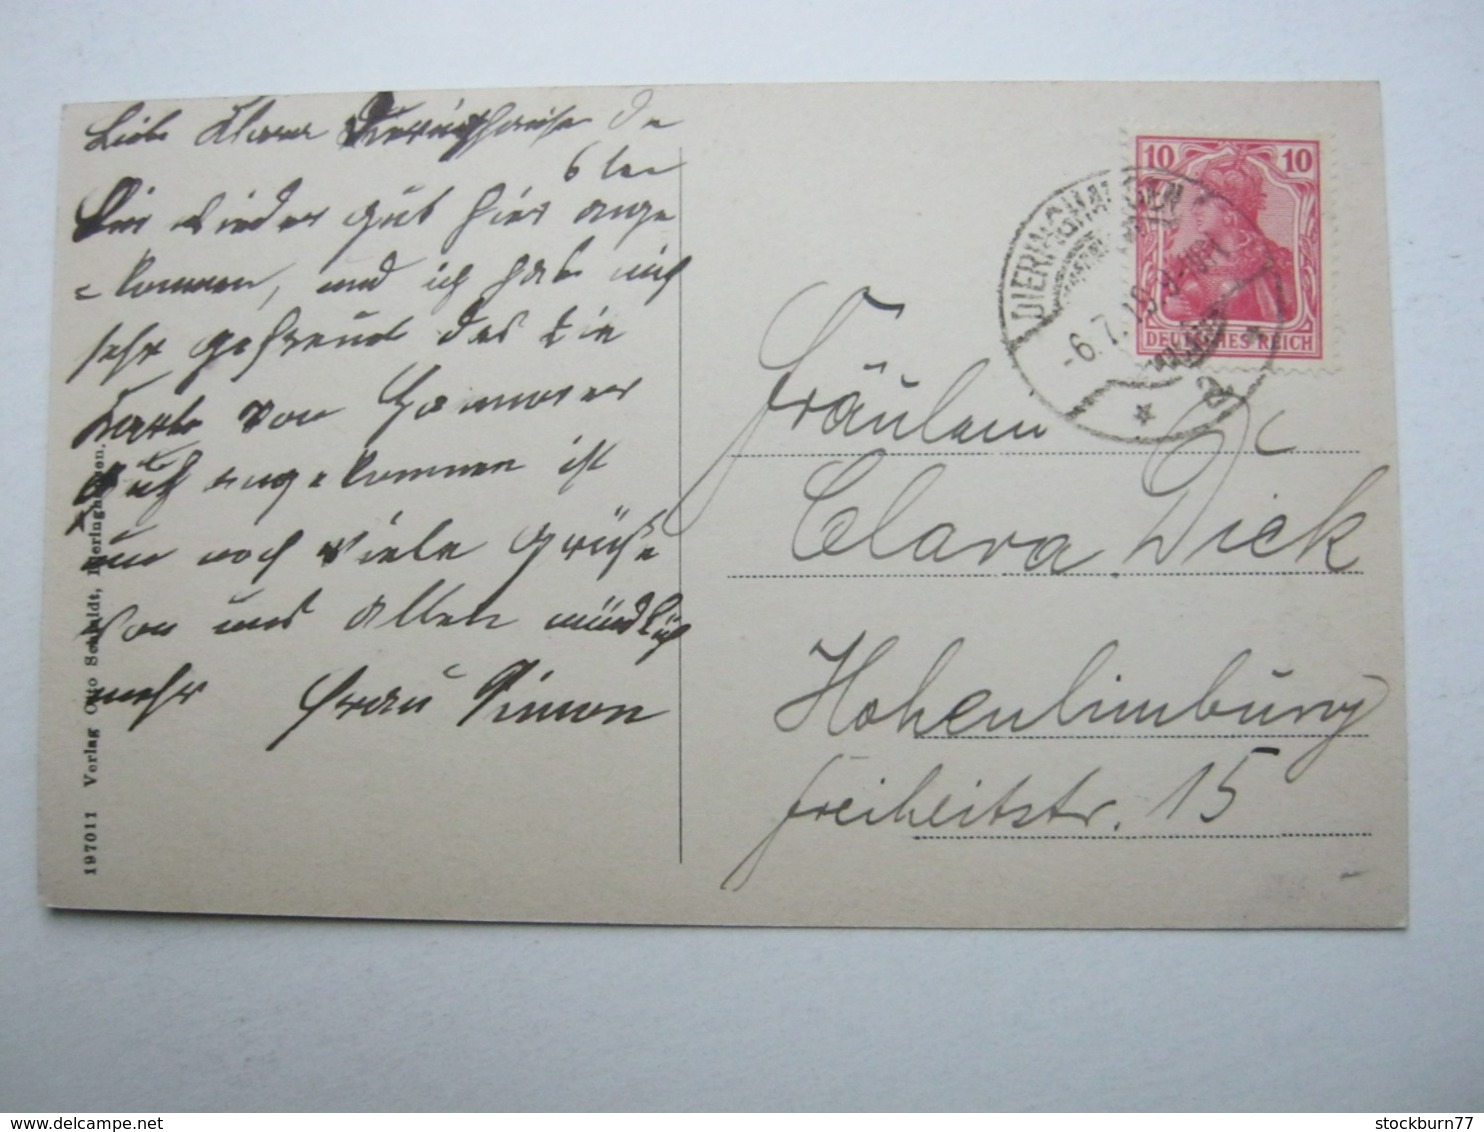 Liebe Klara Dieringhause d
6ten
Bin wieder gut hier ange
= kommen, und ich hab mich
sehr gefreud das die
Karte von Hannover
auch angekommen ist
nun noch viele Grüße
von uns allen mündlich
mehr Frau Simon
197011 Verlag Otto Schmidt, Dieringhausen.
10 10
DEUTSCHES REICH
DIERINGHAUSEN
-6.7.19.9-10V
* a *
Fräulein
Clara Dick
Hohenlimburg
Freiheitstr. 15
stockburn77